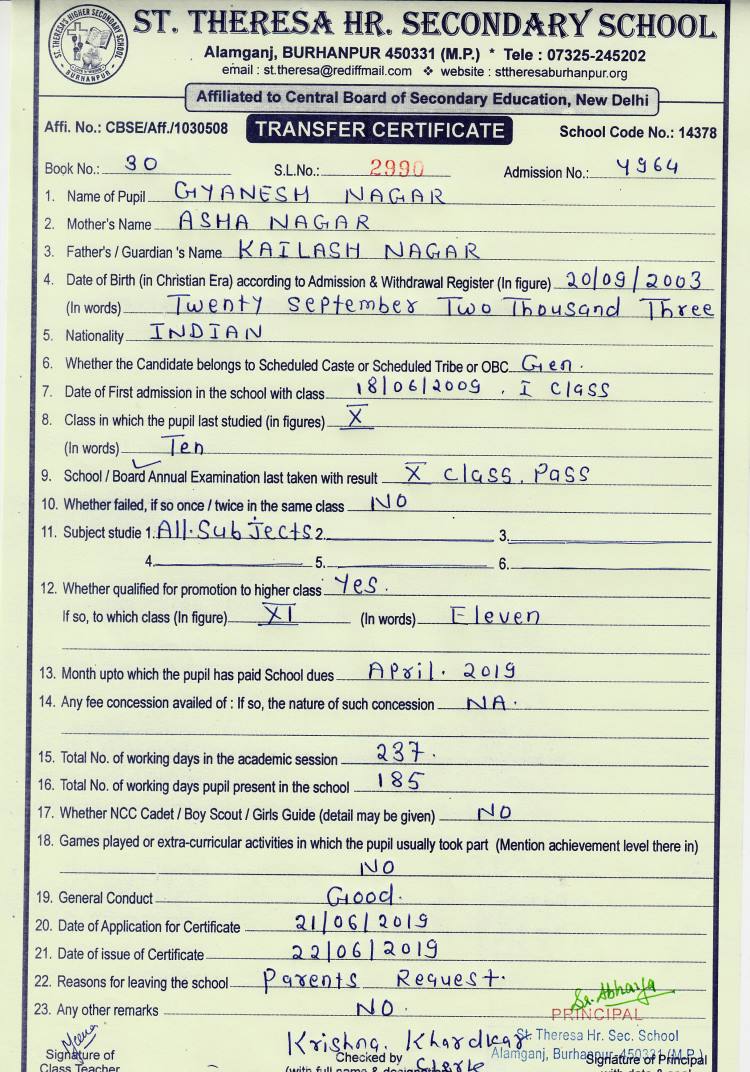 ST. THERESA HR. SECONDARY SCHOOL
ST. THERESA'S HIGHER SECONDARY SCHOOL
BURHANPUR
Alamganj, BURHANPUR 450331 (M.P.) * Tele : 07325-245202
email : st.theresa@rediffmail.com ❖ website : sttheresaburhanpur.org
Affiliated to Central Board of Secondary Education, New Delhi
Affi. No.: CBSE/Aff./1030508 TRANSFER CERTIFICATE School Code No.: 14378
Book No.: 30 S.L.No.: 2990 Admission No.: 4964
1. Name of Pupil GYANESH NAGAR
2. Mother's Name ASHA NAGAR
3. Father's / Guardian 's Name KAILASH NAGAR
4. Date of Birth (in Christian Era) according to Admission & Withdrawal Register (In figure) 20/09/2003
(In words) Twenty September Two Thousand Three
5. Nationality INDIAN
6. Whether the Candidate belongs to Scheduled Caste or Scheduled Tribe or OBC Gen.
7. Date of First admission in the school with class 18/06/2009 . I Class
8. Class in which the pupil last studied (in figures) X
(In words) Ten
9. School / Board Annual Examination last taken with result X Class. Pass
10. Whether failed, if so once / twice in the same class NO
11. Subject studie 1. All. Subjects 2. 3.
4. 5. 6.
12. Whether qualified for promotion to higher class Yes.
If so, to which class (In figure) XI (In words) Eleven
13. Month upto which the pupil has paid School dues April. 2019
14. Any fee concession availed of : If so, the nature of such concession NA.
15. Total No. of working days in the academic session 237.
16. Total No. of working days pupil present in the school 185
17. Whether NCC Cadet / Boy Scout / Girls Guide (detail may be given) NO
18. Games played or extra-curricular activities in which the pupil usually took part (Mention achievement level there in)
NO
19. General Conduct Good.
20. Date of Application for Certificate 21/06/2019
21. Date of issue of Certificate 22/06/2019
22. Reasons for leaving the school Parents Request.
23. Any other remarks NO.
Sr. Abhaya
PRINCIPAL
Meena Krishna. Khardkar St. Theresa Hr. Sec. School
Signature of Checked by Clerk Alamganj, Burhanpur-450331 (M.P.) Signature of Principal
Class Teacher (with full name & designation) with date & seal